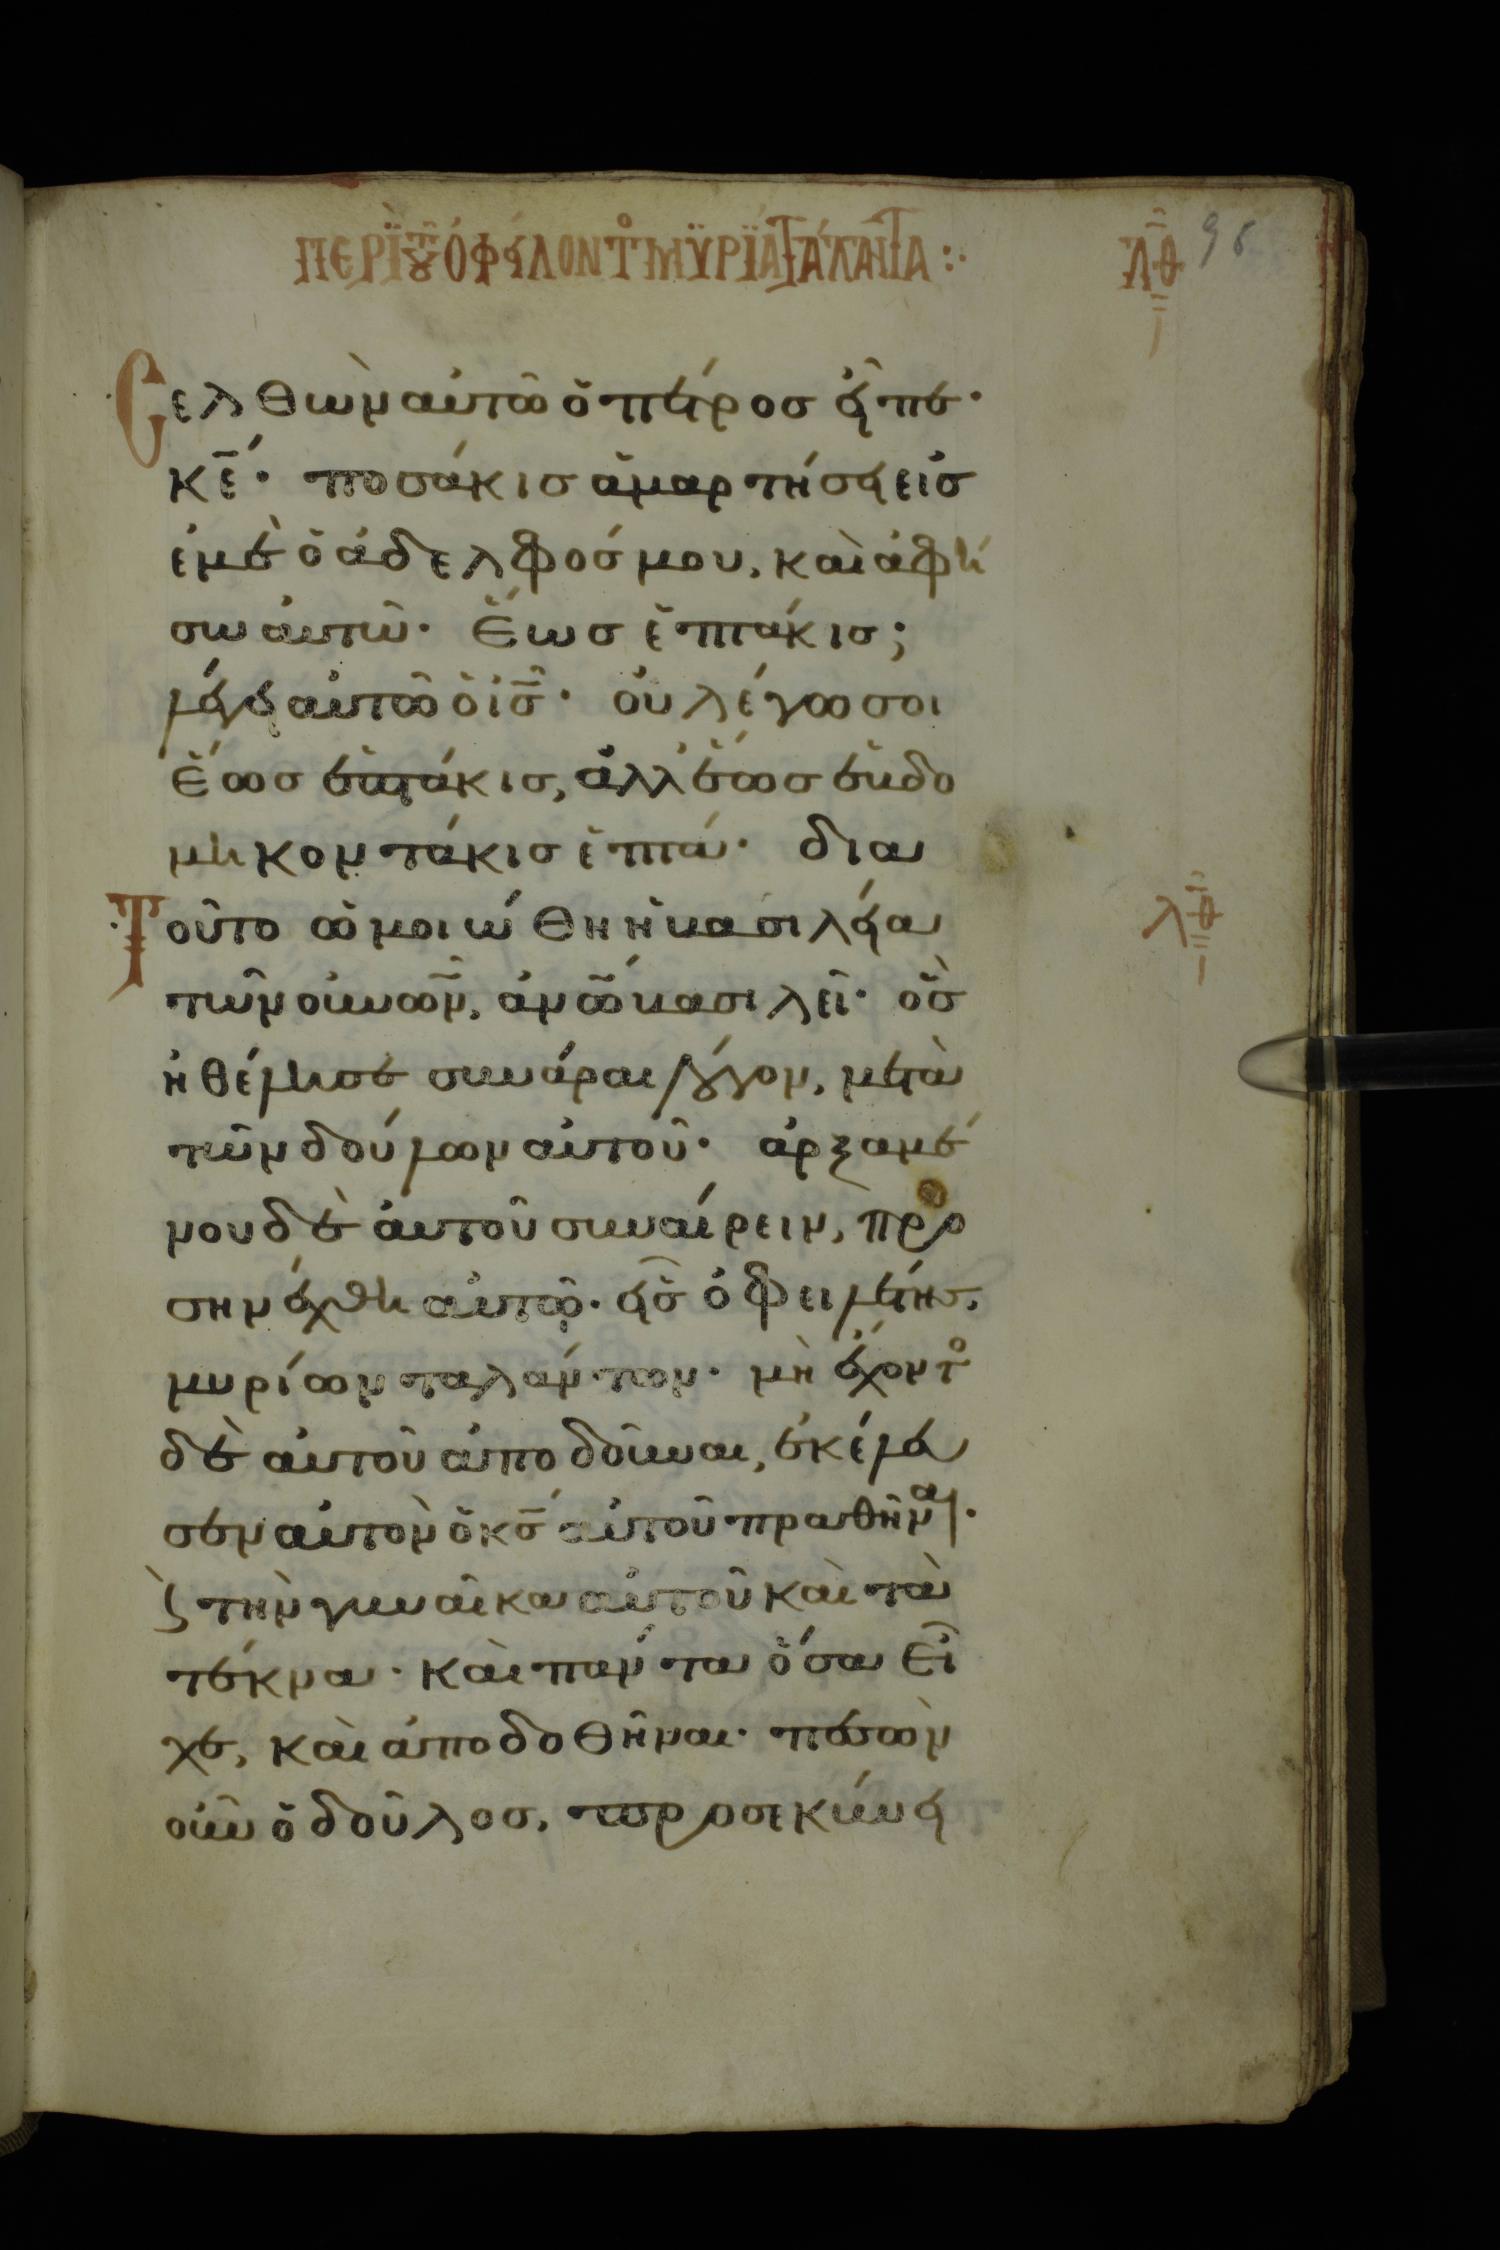 ΠΕΡΙ ΤΟΥ ΟΦΕΙΛΟΝΤΟΣ ΜΥΡΙΑ ΤΑΛΑΝΤΑ :· λθ 96
Ϲελθὼν αὐτῶ ὁ πέτροσ εἶπε·
κ̅ε̅· ποσάκισ ἁμαρτήσει εἰσ
ἐμὲ ὁ ἀδελφόσ μου, καὶ ἀφή
σω αὐτῶ· ἕωσ ἑπτάκισ;
λέγει αὐτῶ ὁ ι̅σ̅· οὐ λέγω σοι
ἕωσ ἑπτάκισ, ἀλλ' ἕωσ ἑβδο
μηκοντάκισ ἑπτά· δια
Τοῦτο ὡμοιώθη ἡ βασιλεία
τῶν οὐνῶν, ἀν̅ω̅ βασιλεῖ· ὃσ
ἠθέλησε συνάραι λόγον, μετὰ
τῶν δούλων αὐτοῦ· ἀρξαμέ
νου δὲ αὐτοῦ συναίρειν, προ
σηνέχθη αὐτῶ· εἷσ ὀφειλέτησ,
μυρίων ταλάντων· μὴ ἔχοντο
δὲ αὐτοῦ ἀποδοῦναι, ἐκέλευ
σεν αὐτὸν ὁ κ̅σ̅ αὐτοῦ πραθῆναι·
ϗ τὴν γυναῖκα αὐτοῦ καὶ τὰ
τέκνα· καὶ πάντα ὅσα εἶ
χε, καὶ ἀποδοθῆναι· πεσὼν
οὖν ὁ δοῦλοσ, προσεκύνει
λθ